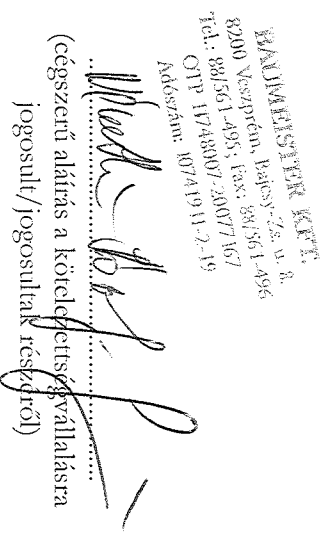 BAUMEISTER KFT.
8200 Veszprém, Bajcsy-Zs. u. 8.
Tel.: 88/561-495; Fax: 88/561-496
OTP 11748007-20077167
Adószám: 10741911-2-19
(cégszerű aláírás a kötelezettségvállalásra
jogosult/jogosultak részéről)